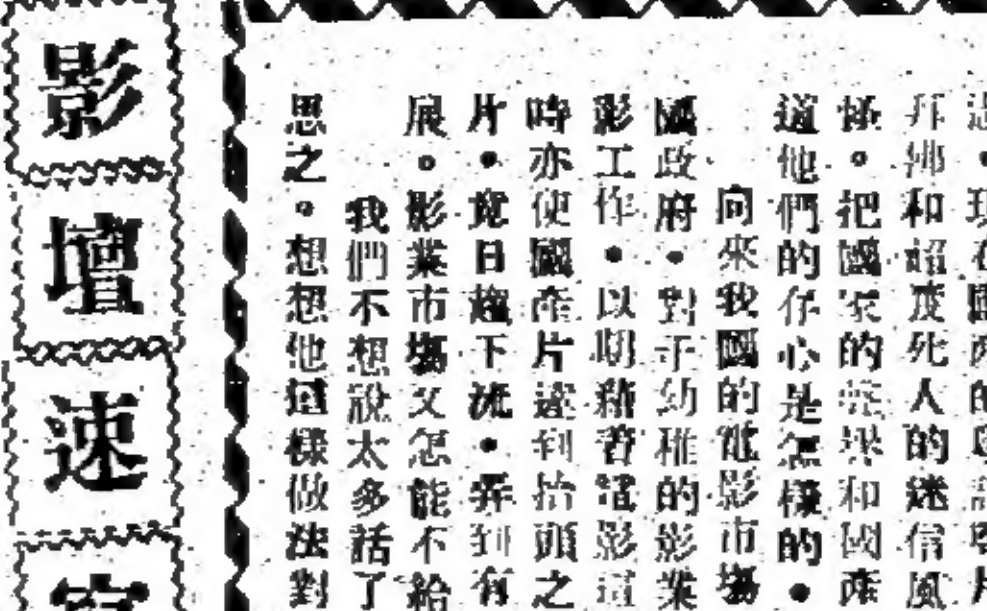 現在國產的
拜佛和超度死人的迷信風
怪。把國家的榮譽和國產
道他們的存心是怎樣的。
向來我國的電影市塲
政府。對于幼稚的影業
影工作。以期藉着電影這
時亦使國產片達到抬頭之
片。竟日趨下流。弄到有
展。影業市塲又怎能不給
我們不想說太多話了
思之。想想他這樣做法對
影壇速